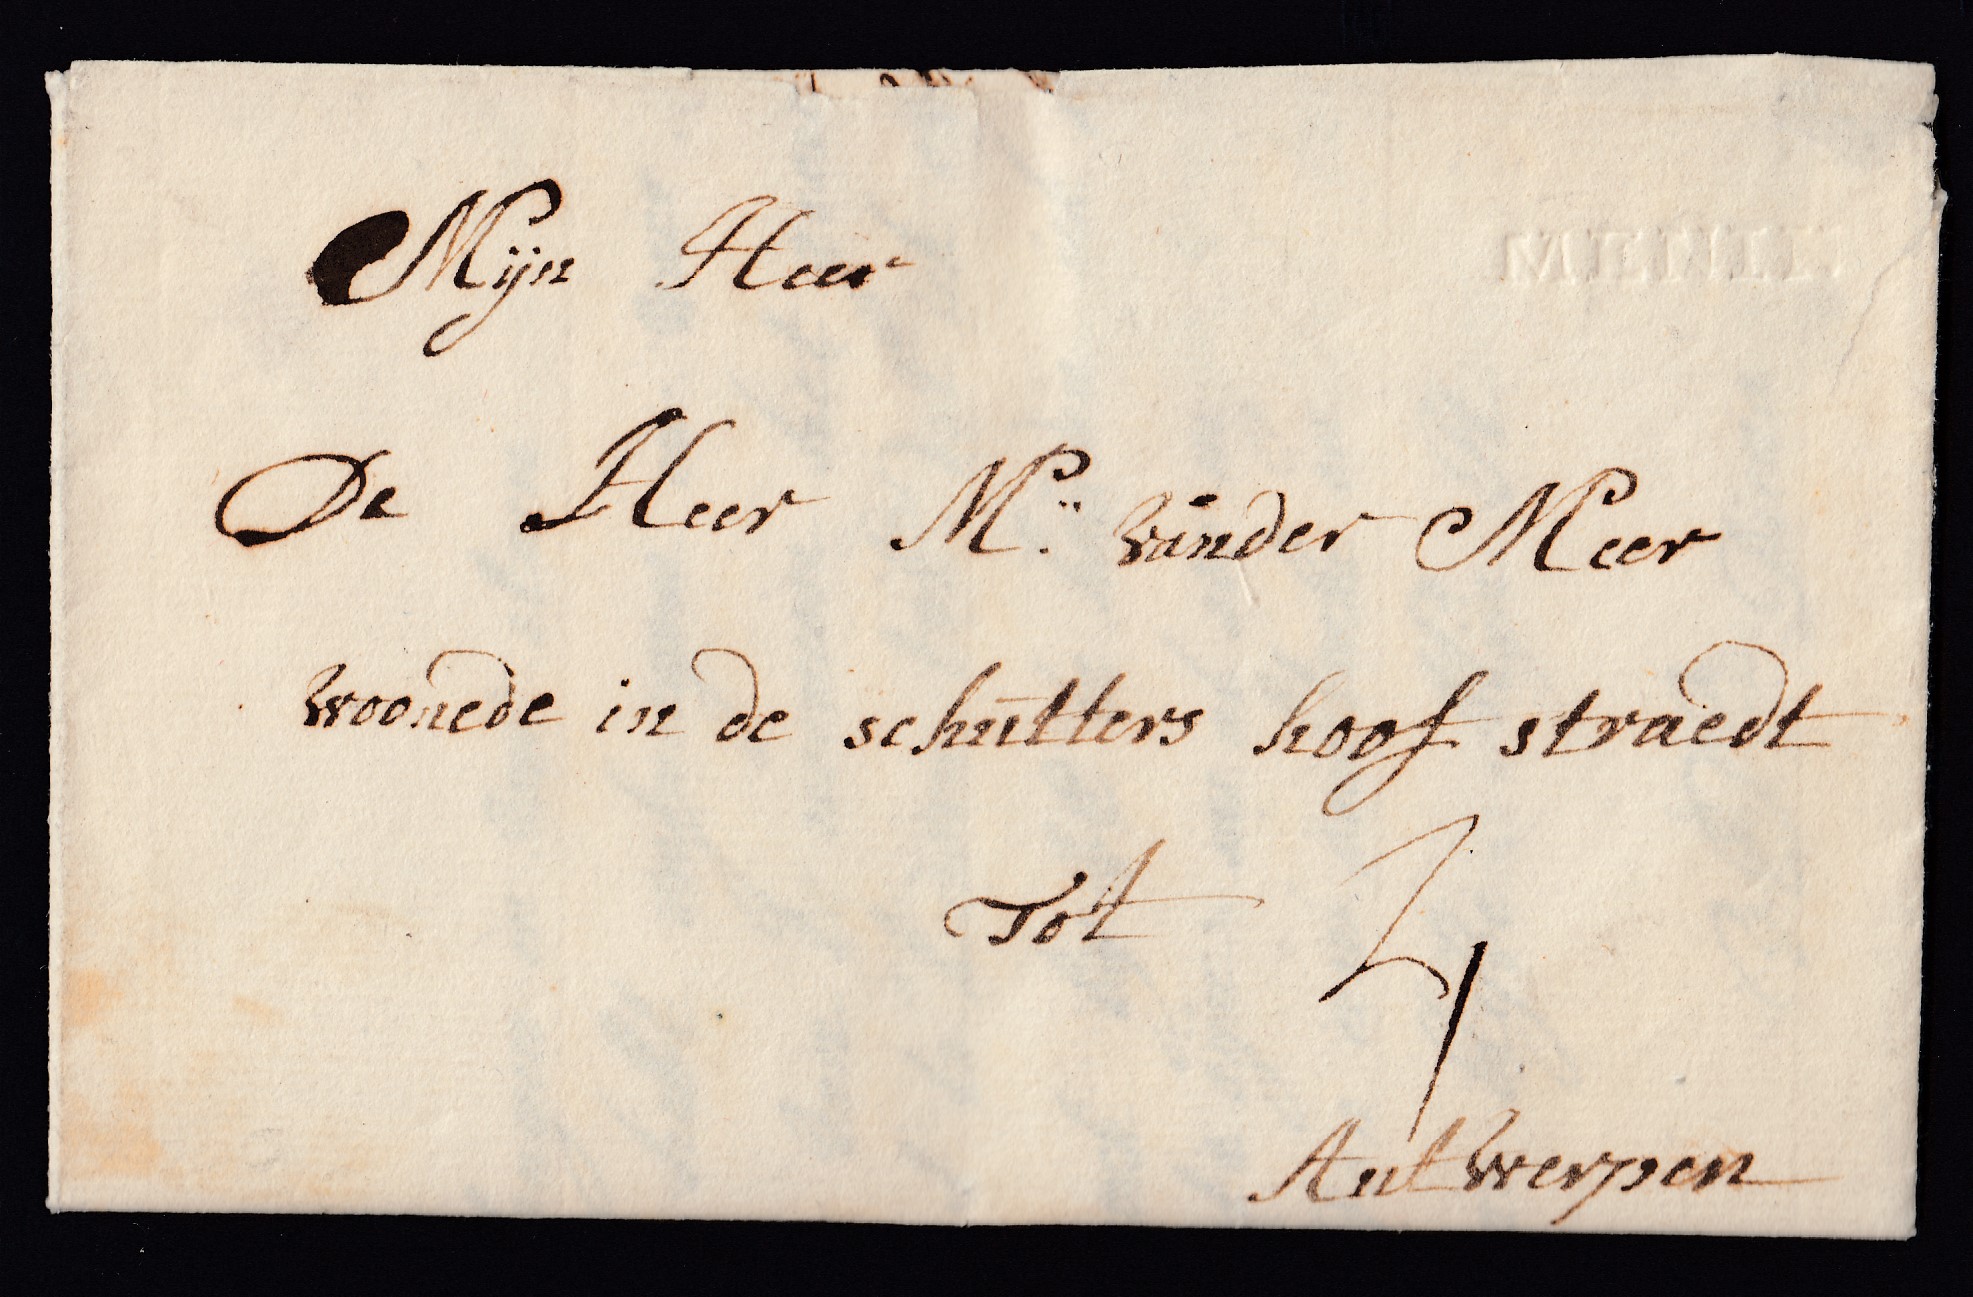 Mijn Heer
De Heer M.r vander Meer
woonede in de schutters hoof straedt
Tot 4
Antwerpen